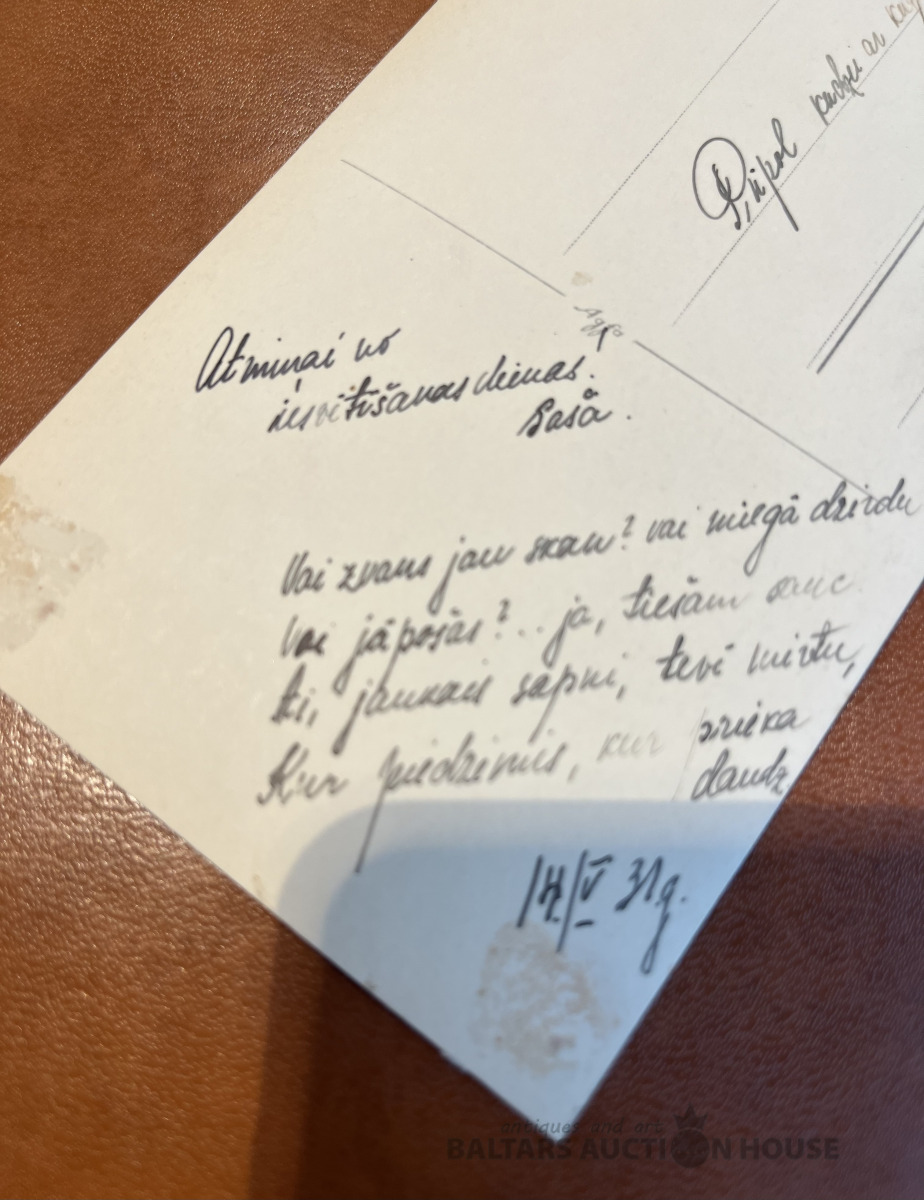 kundzei ar
Agfa
Atminai no
iesvētīšanas dienas!
Sašā.
Vai zvans jau skan? vai miegā dzirdu
Vai jāposās?.. ja, tiešām sauc
ti, jaukais sapni, tevi mirtu,
Kur piedzimis, kur prieka
daudz.
14/V 31g.
antiques and art
BALTARS AUCTION HOUSE